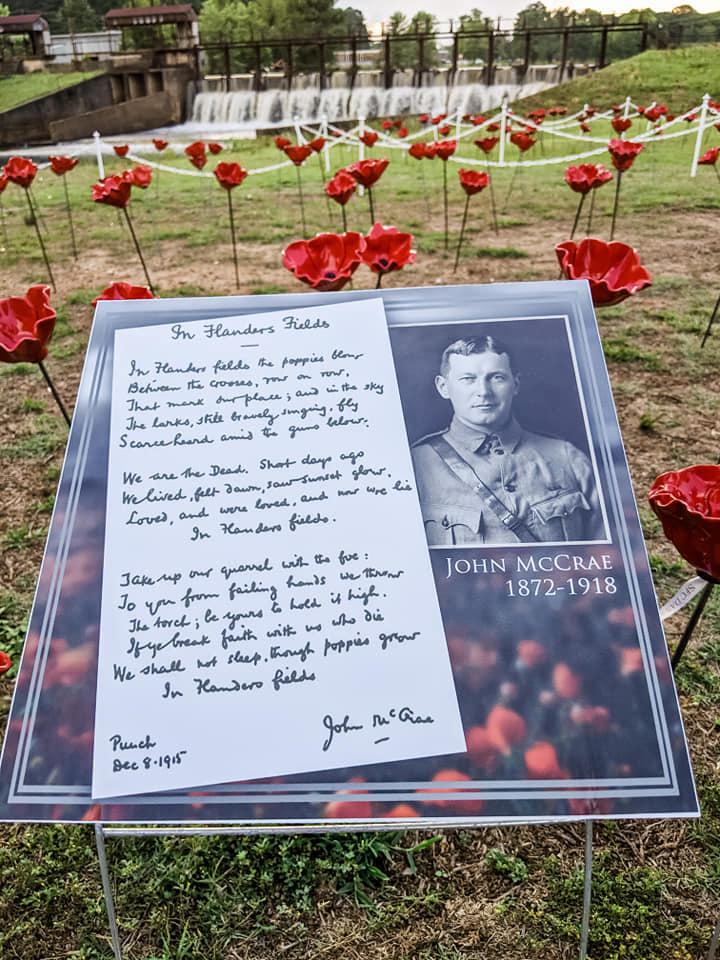 In Flanders Fields
In Flanders fields the poppies blow
Between the crosses, row on row,
That mark our place; and in the sky
The larks, still bravely singing, fly
Scarce heard amid the guns below.
We are the Dead. Short days ago
We lived, felt dawn, saw sunset glow,
Loved, and were loved, and now we lie
In Flanders fields.
Take up our quarrel with the foe:
To you from failing hands we throw
The torch; be yours to hold it high.
If ye break faith with us who die
We shall not sleep, though poppies grow
In Flanders fields
John McCrae
Punch
Dec 8·1915
JOHN MCCRAE
1872-1918